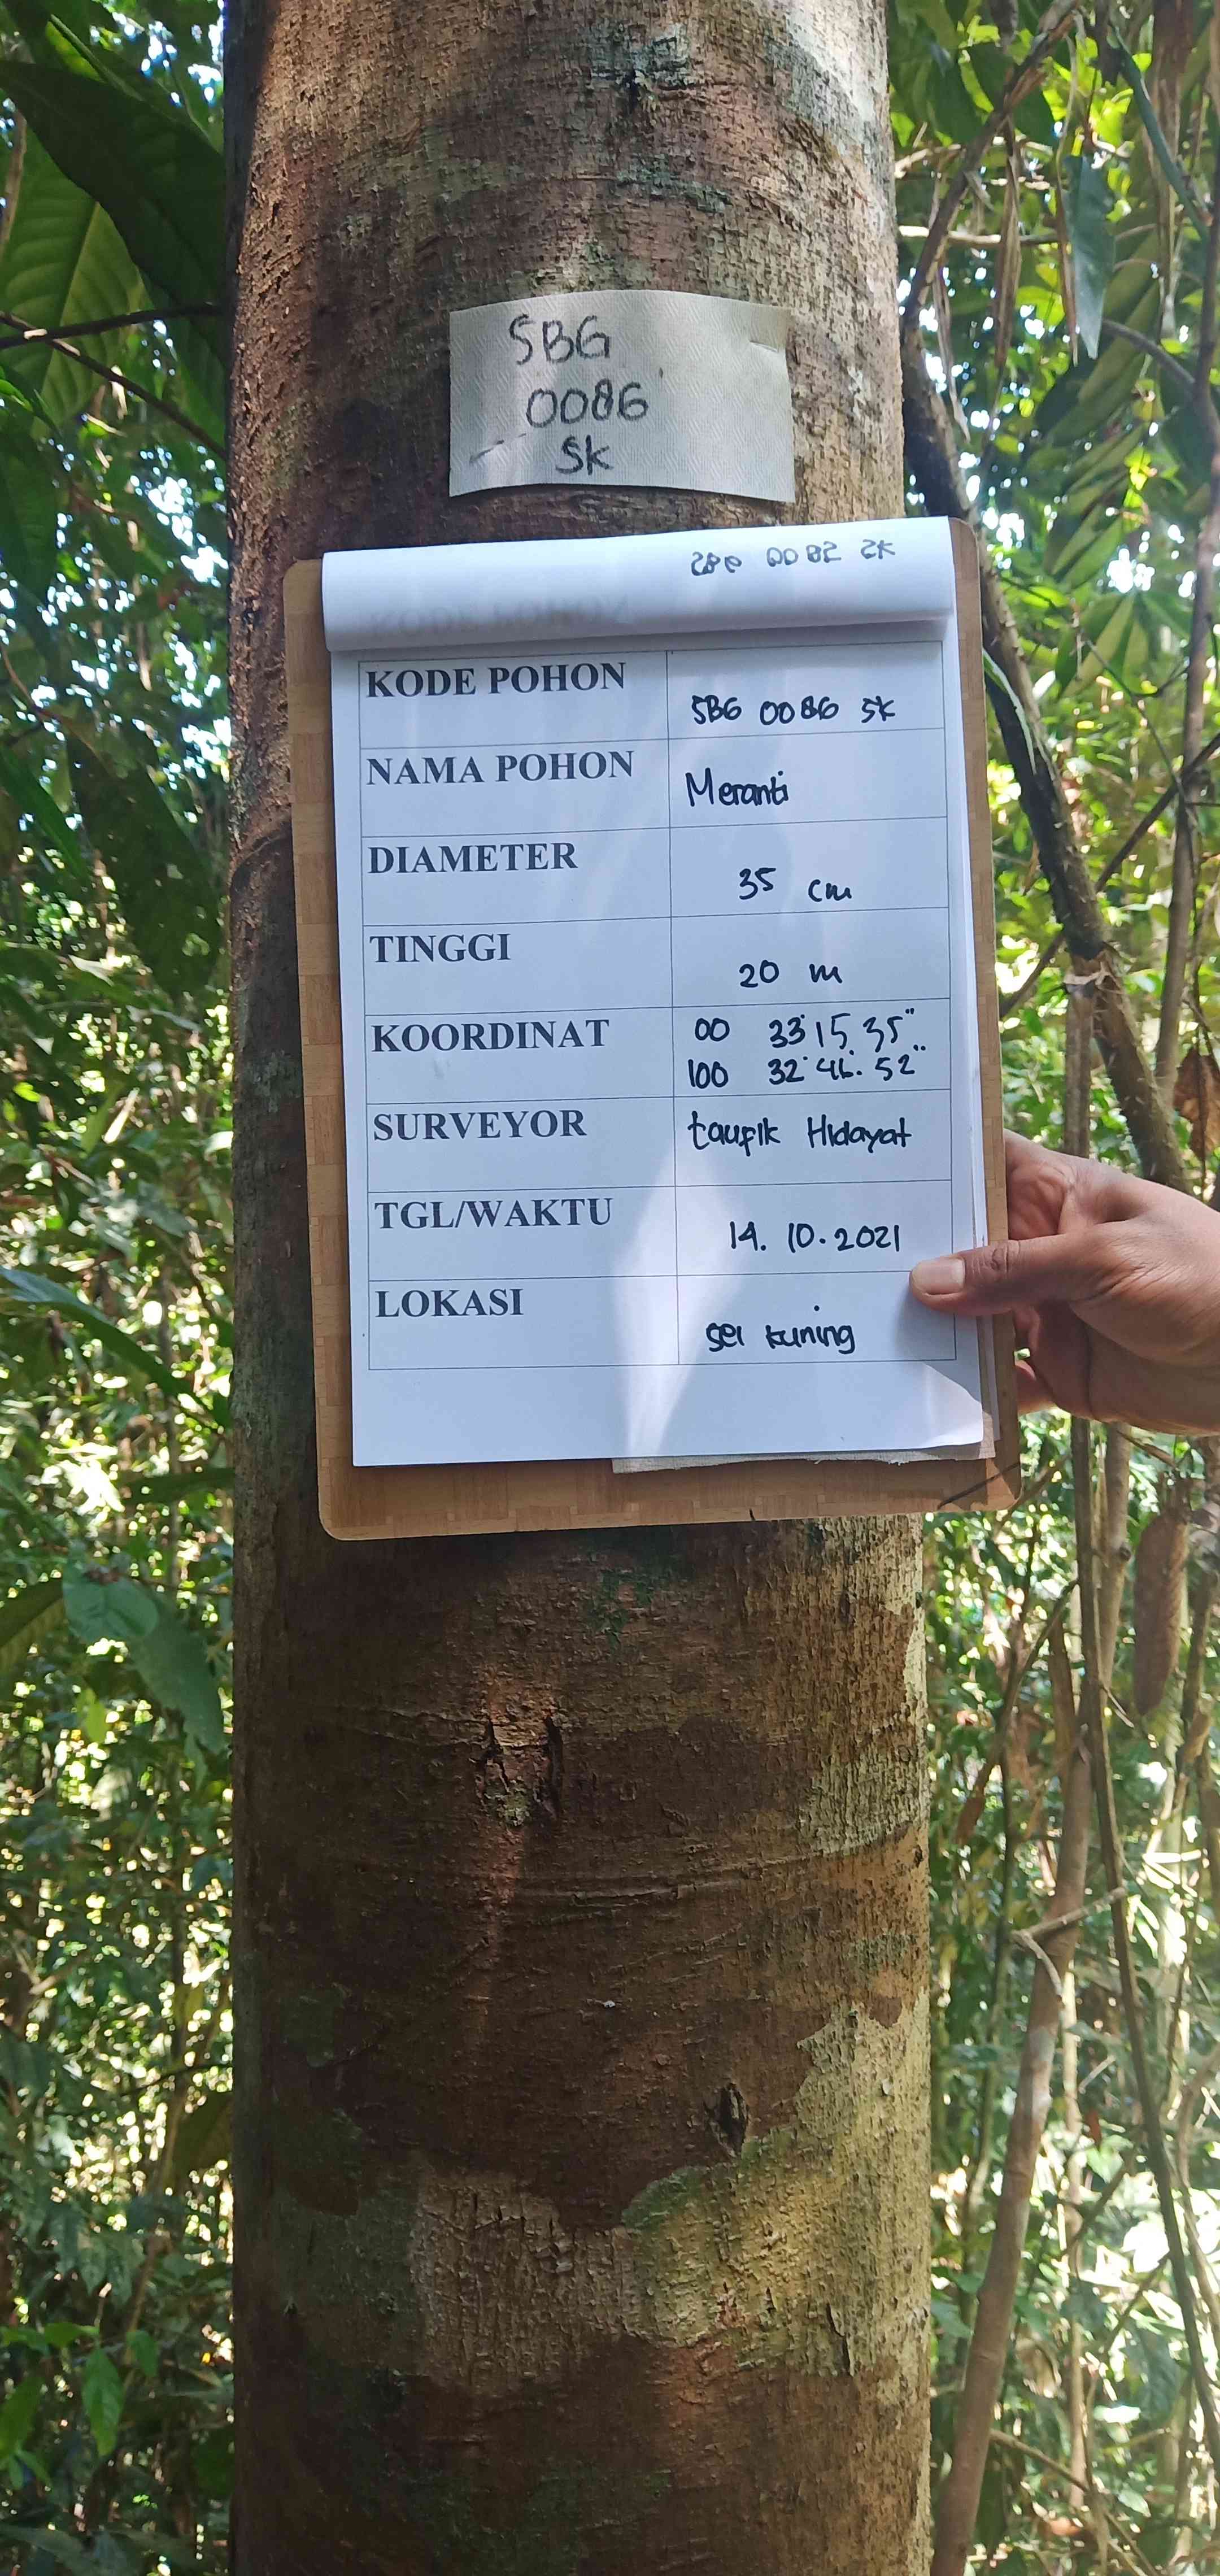 SBG
0086
SK
KODE POHON SBG 0086 SK
NAMA POHON Meranti
DIAMETER 35 cm
TINGGI 20 m
KOORDINAT 00 33' 15. 35"
100 32' 46. 52"
SURVEYOR taufik Hidayat
TGL/WAKTU 14. 10. 2021
LOKASI sei kuning